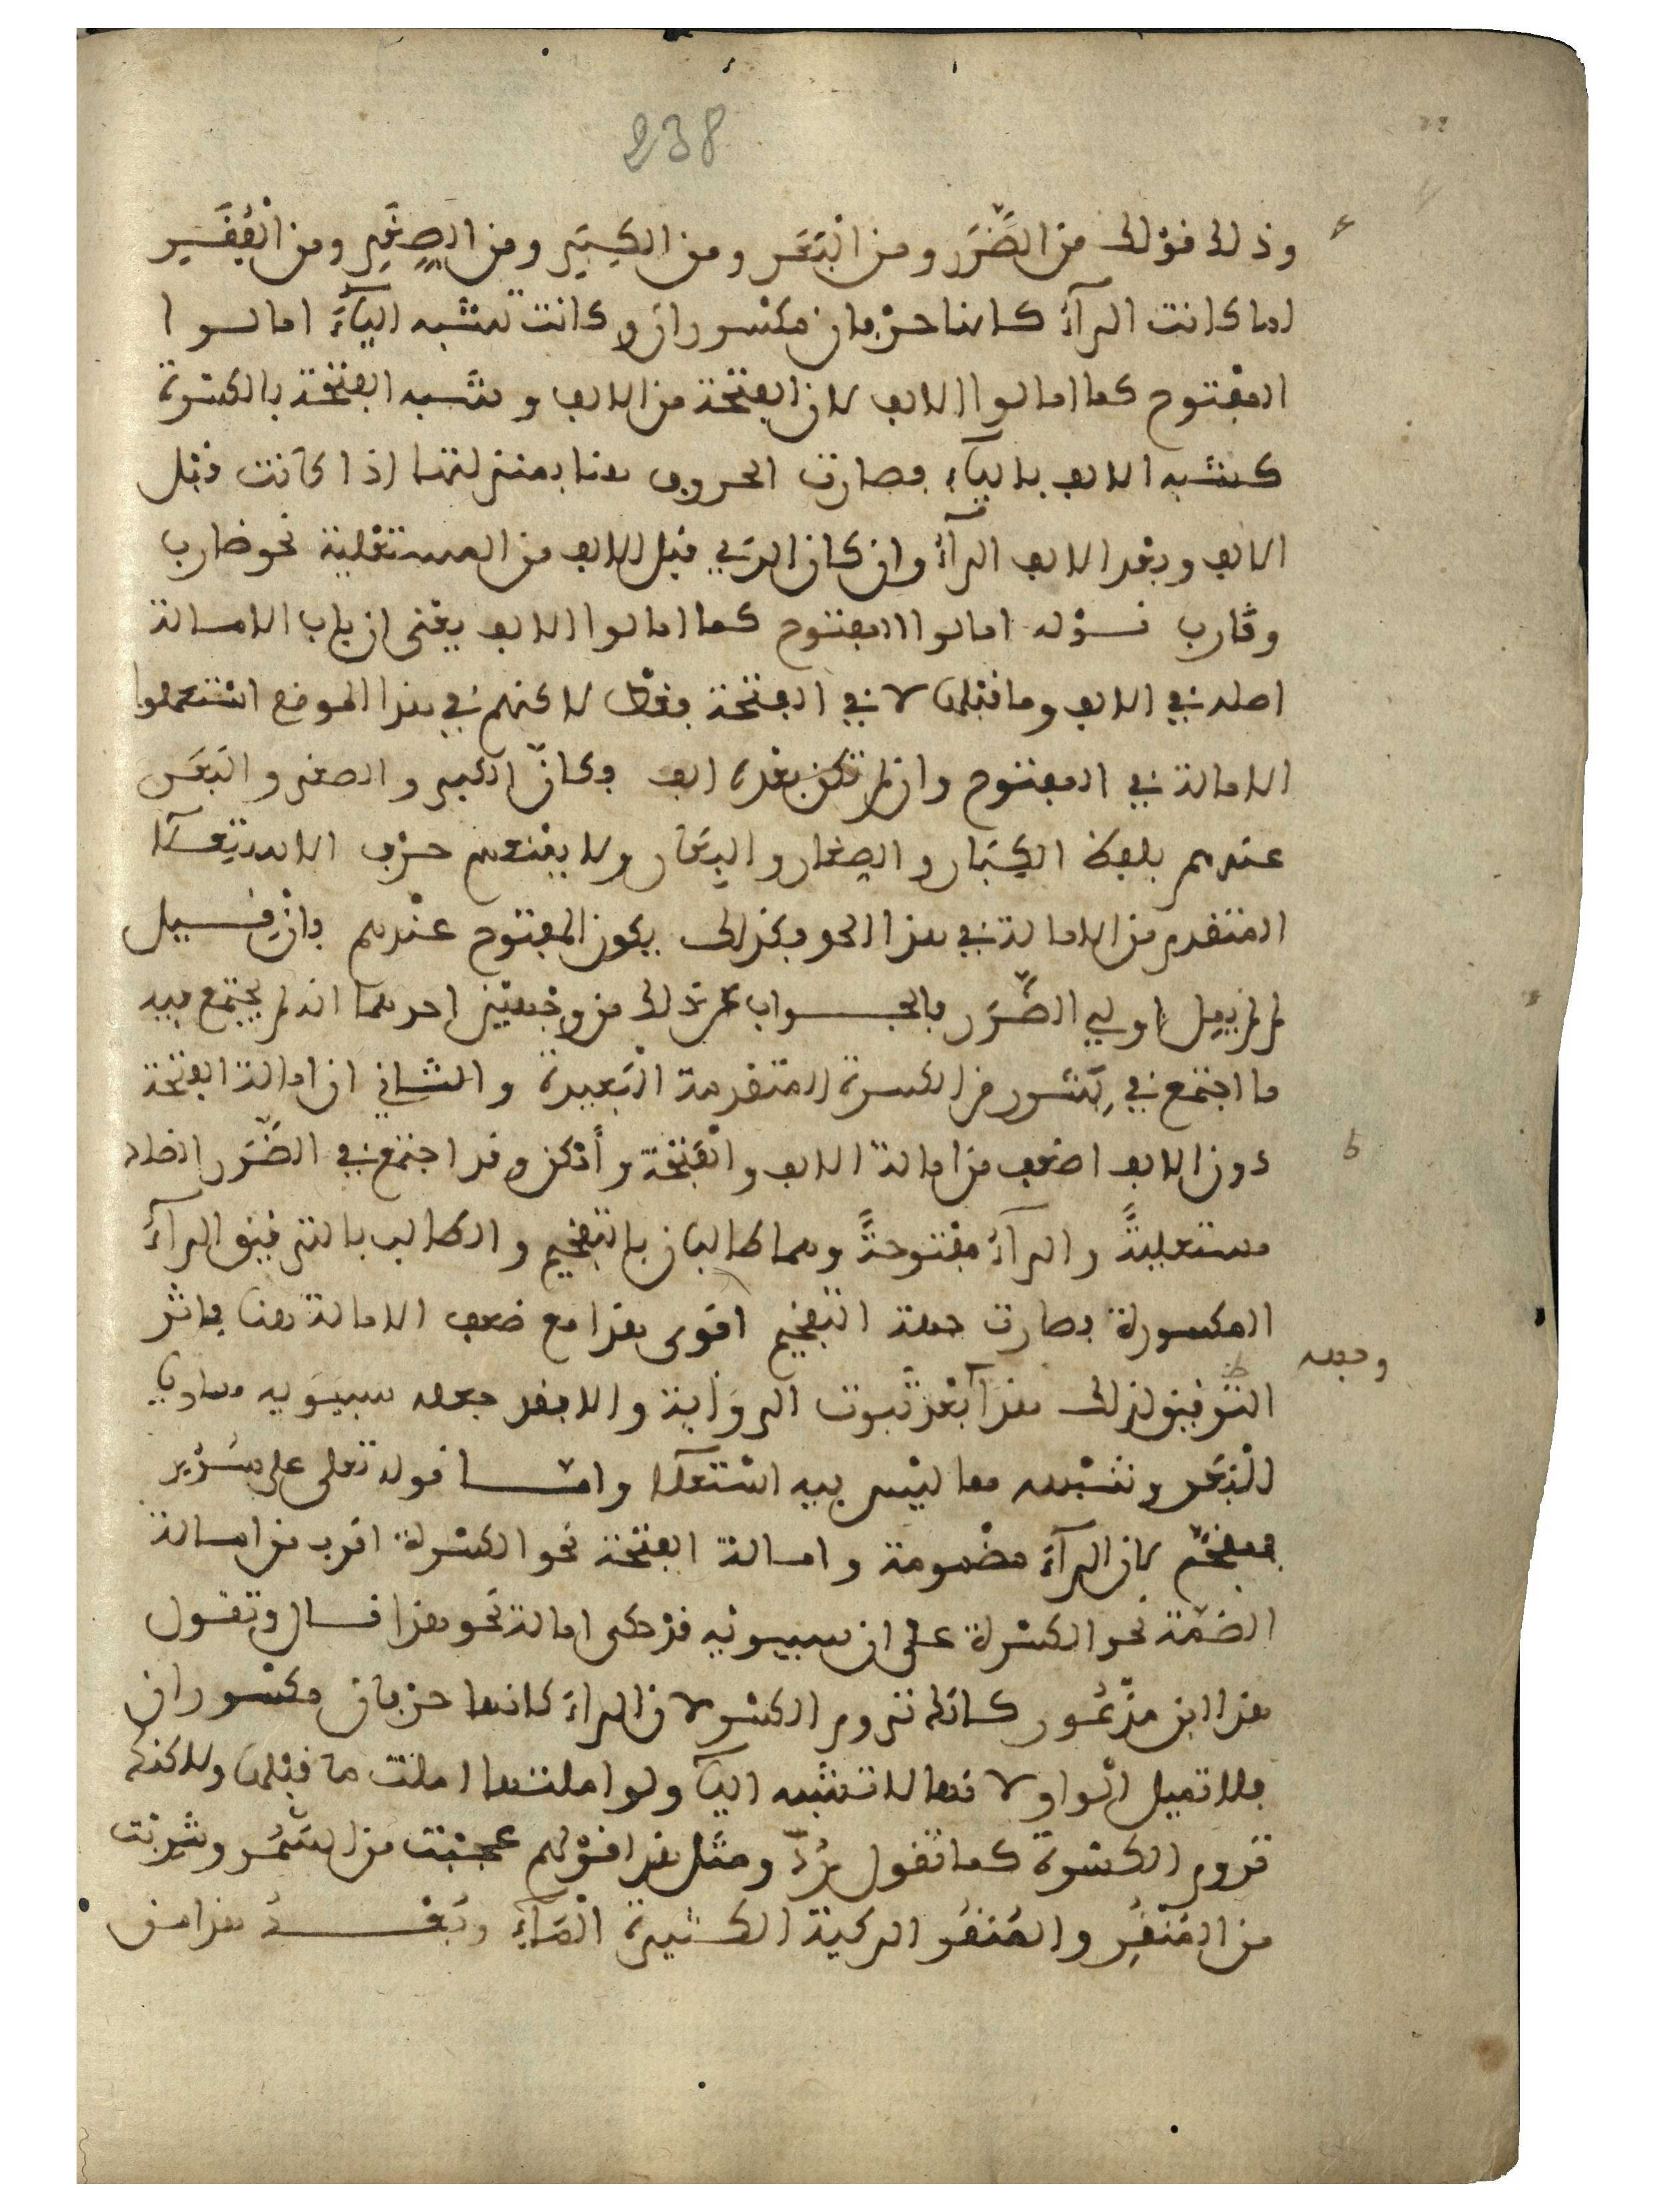 238
وذلك قوْلك من الضَّرَر ومن البَعَر ومن الكِبَرِ ومن الصِغَرِ ومن الفُقَـرِ
لما كانت الرآءُ كانها حرْفان مكسوران وكانت تشبه اليآءَ امالوا
المفْتوح كما امالوا الالف لان الفتحة من الالف وشبه الفتحة بالكسْرة
كشبه الالف باليآء فصارت الحروف هنا بمنزلتها اذا كانت قبْل
الالف وبعْد الالف الرآءُ وان كان الذي قبل الالف من المستعْلية نحو ضارب
وقارب قـوْله امالوا المفتوح كما امالوا الالف يعْنى ان باب الامالة
اصله في الالف وما قبْلها لا في الفتحة فقط لاكنهم في هذا الموضع اسْتعملوا
الامالة في المفتوح وان لم تكن بعْده الف فكانّ الكبر والصغر والبَعَر
عندهم بلفظ الكِبَار والصِغار والبِعَار ولا يمْنعهم حرْف الاستعـلآ
المتقدم من الامالة في هذا النحو فكذلك يكون المفتوح عنْدهم فانْ قـيل
لم لم يمل اولي الضَّرَر فالجـواب عن ذلك من وجْهيْن احدهما انه لم يجتمع فيه
ما اجتمع في بِشَرر من الكسرة المتقدمة البَعيدة والثـاني ان امالة الفتْحة
دون الالف اضعف من امالة الالف والفَتْحة وأمْكن وقد اجتمع في الضَّرَر الضاد
مستعليةً والرآءُ مفْتوحةً وهما طالبان بالتفْخيم والطالب بالترقيق الرآءُ
المكسورة فصارت جهة التفخيم اقوى هذا مع ضعف الامالة هنا فاثر
التوفيق لذلك هذآ بَعْد ثبوت الروَاية والا فقد جعله سيبَويه مساويا
وجهه
للْبَعَر وشبْهه مما ليْس فيه اسْتعلآ وامّـا قوله تعلى على سُرُر
فمفخّم لان الرآءَ مضْمومة وامـالة الفتْحة نحو الكسْرة اقرب من امـالة
الضمّة نحو الكسْرة على ان سيبويْه قدْ حكى امالة نحو هذا قـال وتقول
هذا ابن مذْعُور كانك تروم الكسْر لان الراءَ كانها حرْفان مكسْوران
فلا تميل الْواو لانها لا تشبه اليآ ولو املتها املْت ما قبْلها ولاكنك
تروم الكسْرة كما تقول رُدَّ ومثل هذا قوْلهم عجبْت من السَّمُر وشرِبْت
من المُنْقُر والمُنقُر الركية الكثيرة الْمَآءِ وبَعْــد هذا من